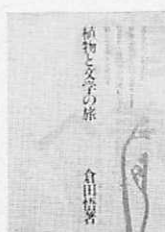 植物と文学の旅
倉田悟著